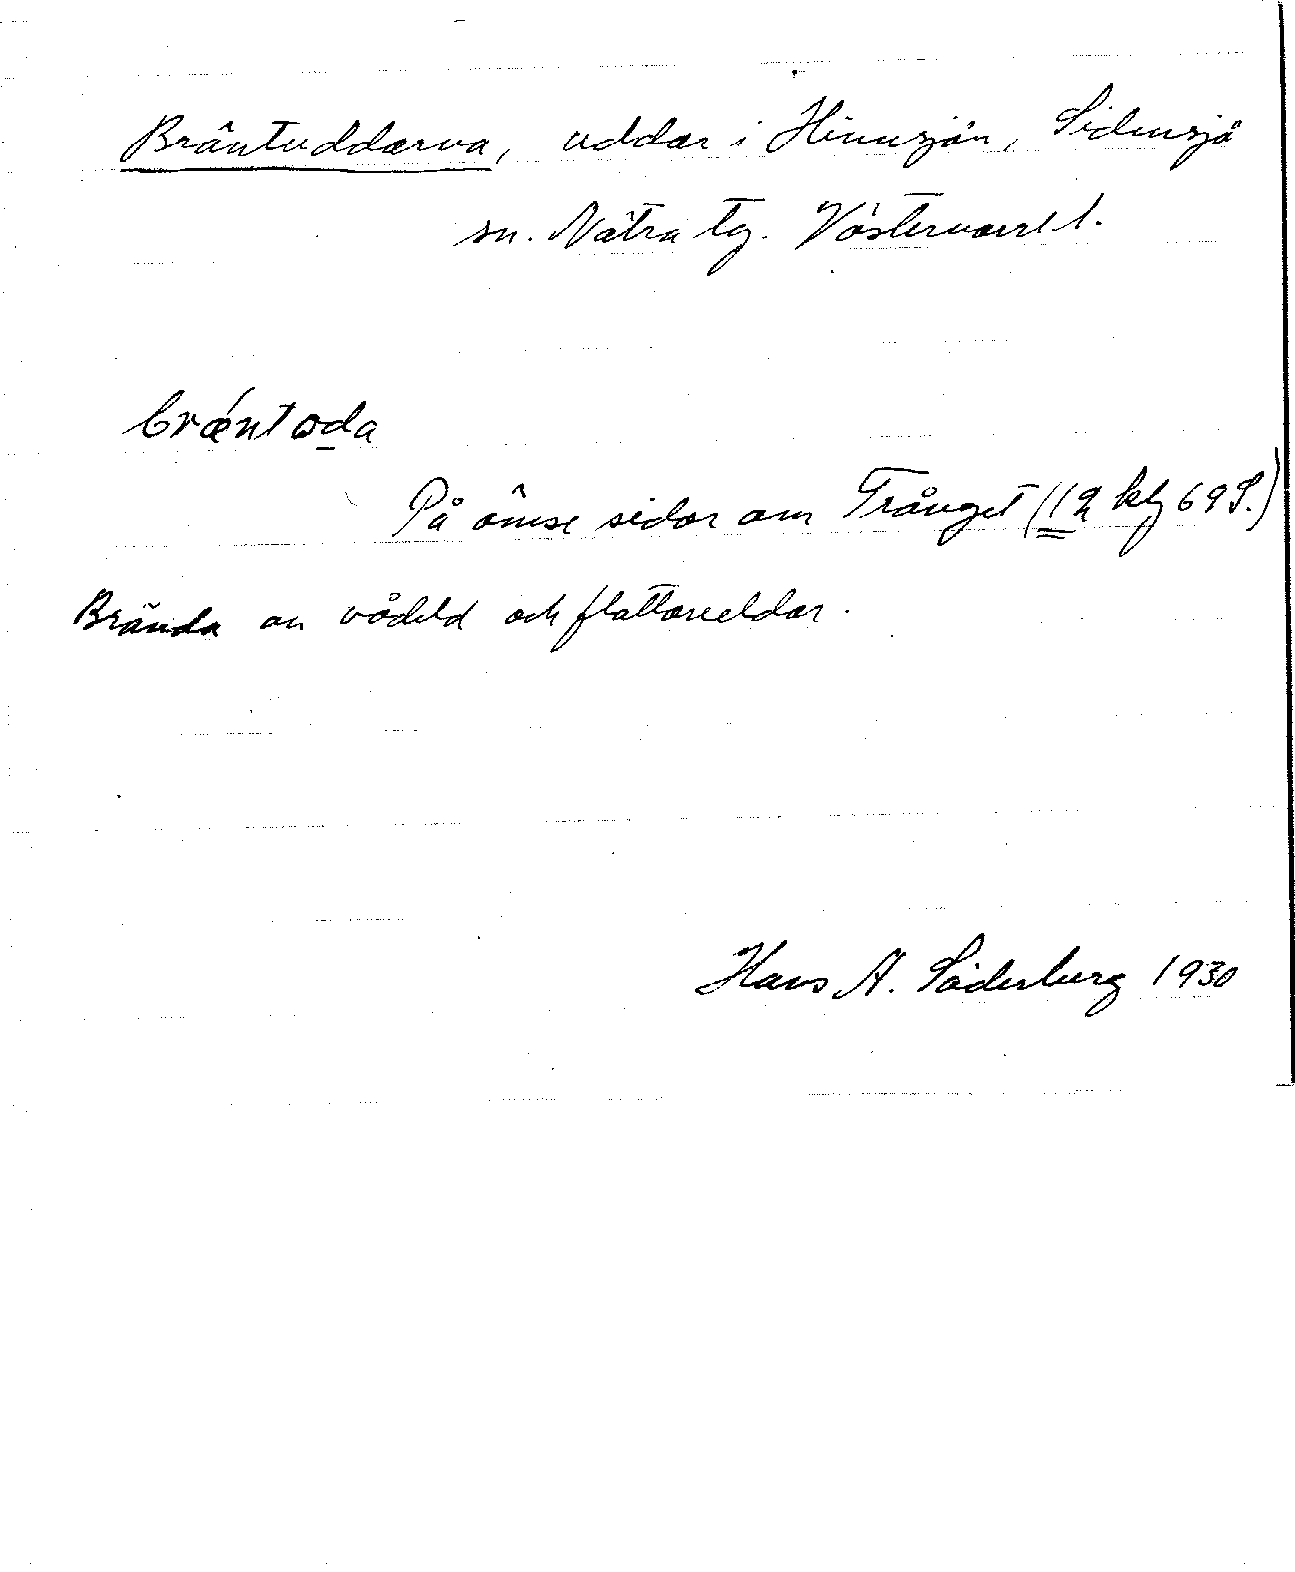 Bräntuddarna, uddar i Hinnsjön, Sidensjö
sn. Nätra tg. Västernorrl l.
brǽntoda
På ömse sidor om Trånget (12 kbf 69 S.)
Brända av vådeld och flottareldar.
Hans A. Söderberg 1930